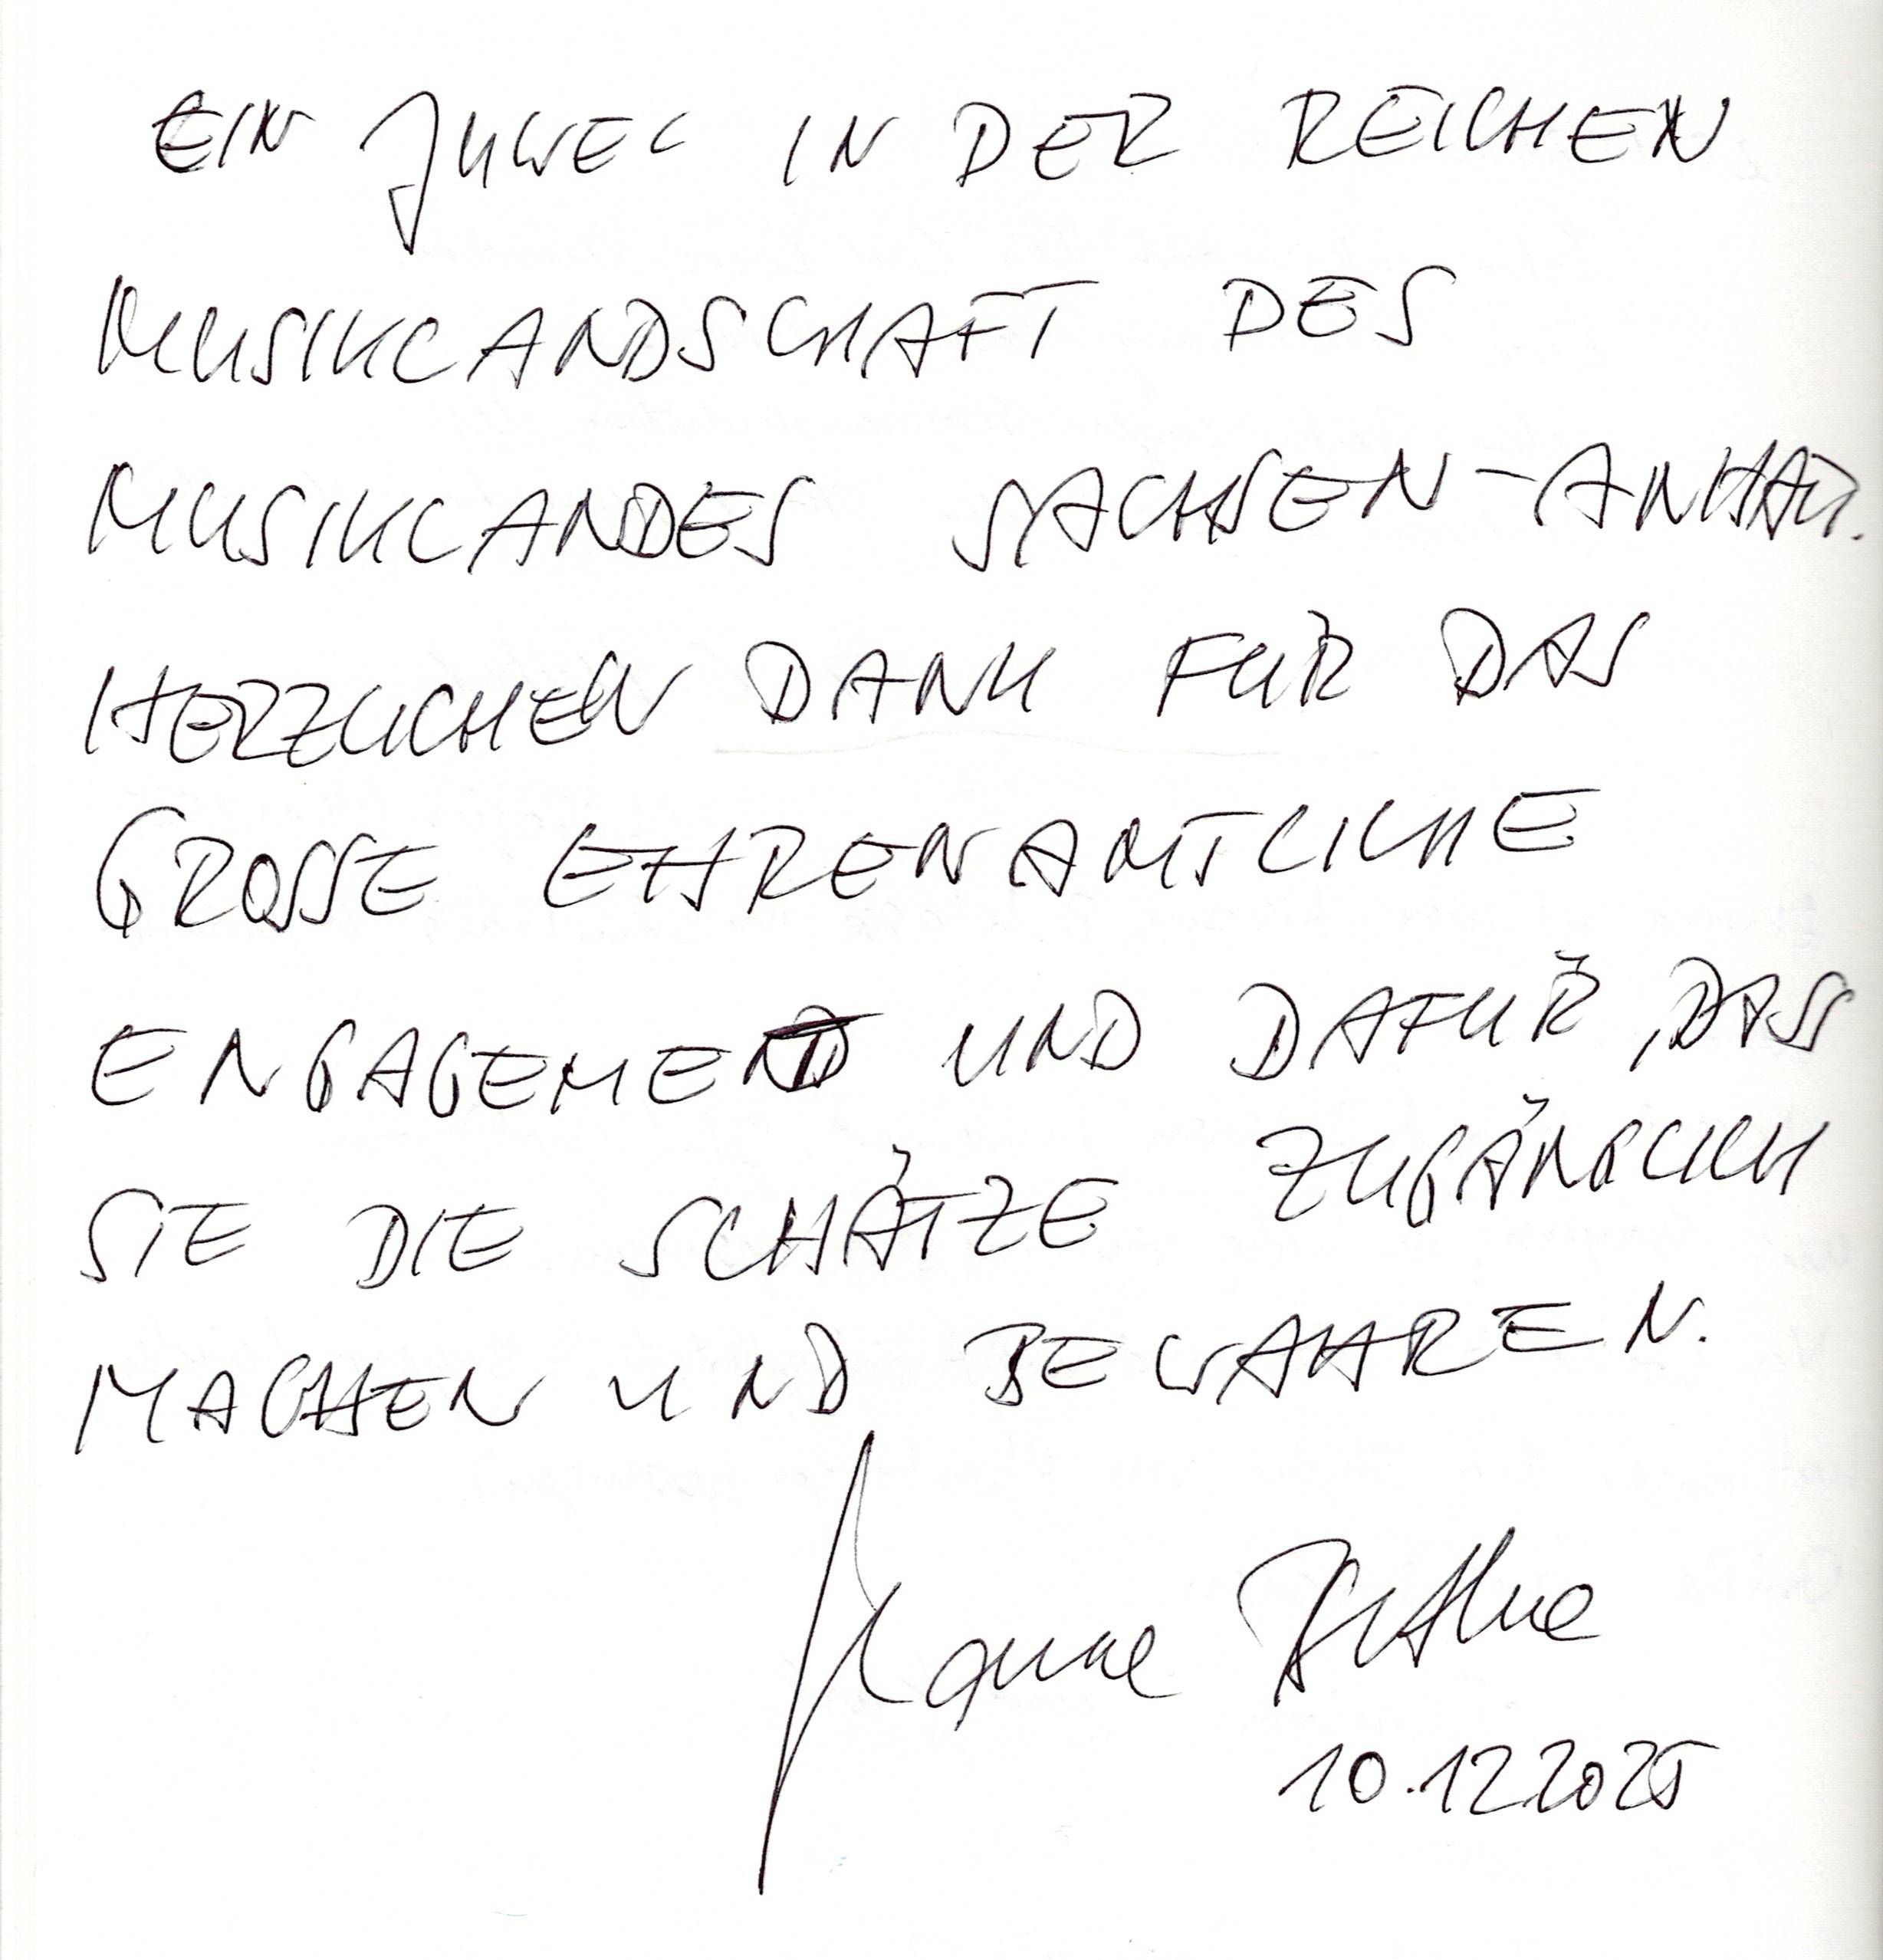 EIN JUWEL IN DER REICHEN
MUSIKLANDSCHAFT DES
MUSIKLANDES SACHSEN-ANHALT.
HERZLICHEN DANK FÜR DAS
GROSSE EHRENAMTLICHE
ENGAGEMENT UND DAFÜR, DASS
SIE DIE SCHÄTZE ZUGÄNGLICH
MACHEN UND BEWAHREN.
10.12.2025